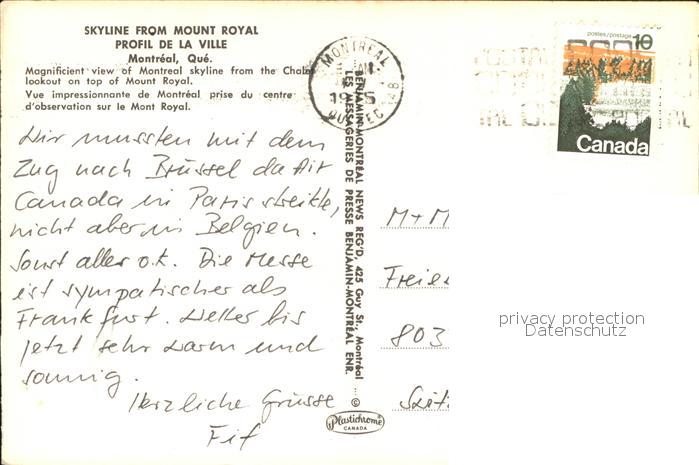 SKYLINE FROM MOUNT ROYAL
PROFIL DE LA VILLE
Montréal, Qué.
Magnificient view of Montreal skyline from the Chalet
lookout on top of Mount Royal.
Vue impressionnante de Montréal prise du centre
d'observation sur le Mont Royal.
Wir mussten mit dem
Zug nach Brüssel da Air
Canada in Paris streikte,
nicht aber in Belgien.
Sonst alles o.k. Die Messe
ist sympatischer als
Frankfurt. Wetter bis
jetzt sehr warm und
sonnig.
Herzliche Grüsse
Fif
BENJAMIN-MONTRÉAL NEWS REG'D, 425 Guy St., Montréal
LES MESSAGERIES DE PRESSE BENJAMIN-MONTRÉAL ENR.
©
Plastichrome
CANADA
MONTREAL
QUEBEC
postes/postage
10
Canada
M+M
803
privacy protection
Datenschutz